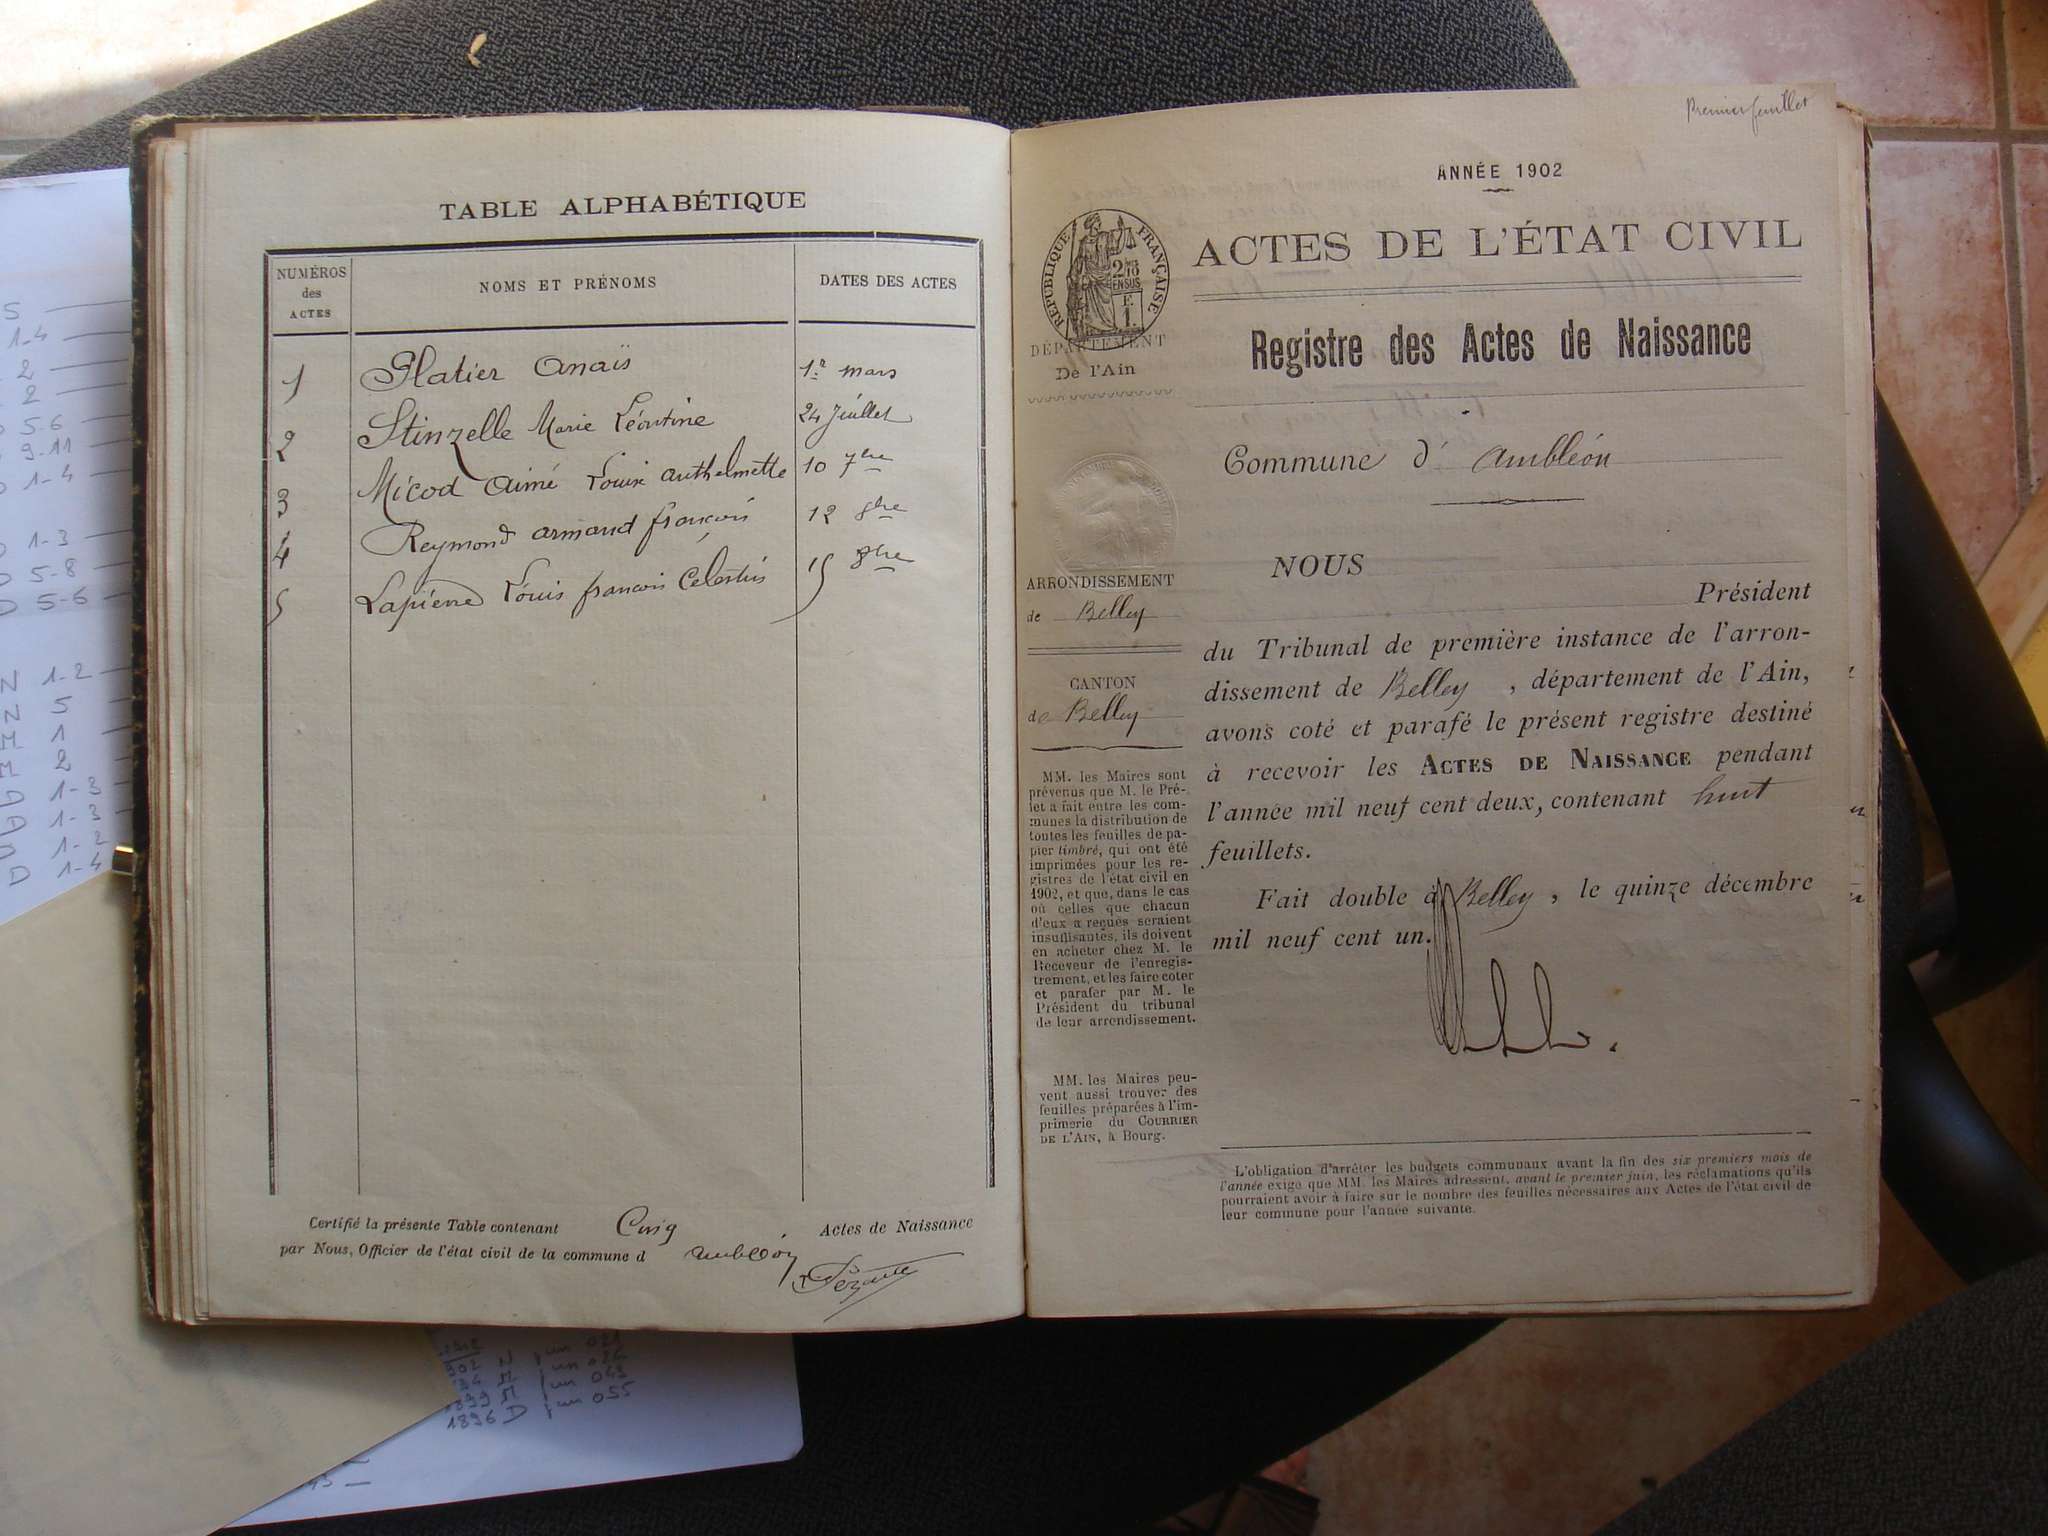 TABLE ALPHABÉTIQUE
NUMÉROS des ACTES
NOMS ET PRÉNOMS
DATES DES ACTES
1 Platier Anaïs 1er mars
2 Stinzelle Marie Léontine 24 Juillet
3 Micod Aimé Louis Anthelmette 10 7bre
4 Reymond Armand François 12 8bre
5 Lapierre Louis François Célestin 15 8bre
Certifié la présente Table contenant Cinq Actes de Naissance
par Nous, Officier de l'état civil de la commune d Ambléon
Premier feuillet
ANNÉE 1902
ACTES DE L'ÉTAT CIVIL
RÉPUBLIQUE FRANÇAISE
2 10 EN SUS
F. 1.
DÉPARTEMENT
De l'Ain
Registre des Actes de Naissance
Commune d' Ambléon
ARRONDISSEMENT
de Belley
CANTON
de Belley
MM. les Maires sont
prévenus que M. le Pré-
fet a fait entre les com-
munes la distribution de
toutes les feuilles de pa-
pier timbré, qui ont été
imprimées pour les re-
gistres de l'état civil en
1902, et que, dans le cas
où celles que chacun
d'eux a reçues seraient
insuffisantes, ils doivent
en acheter chez M. le
Receveur de l'enregis-
trement, et les faire coter
et parafer par M. le
Président du tribunal
de leur arrondissement.
MM. les Maires peu-
vent aussi trouver des
feuilles préparées à l'im-
primerie du COURRIER
DE L'AIN, à Bourg.
NOUS
Président
du Tribunal de première instance de l'arron-
dissement de Belley, département de l'Ain,
avons coté et parafé le présent registre destiné
à recevoir les ACTES DE NAISSANCE pendant
l'année mil neuf cent deux, contenant huit
feuillets.
Fait double à Belley, le quinze décembre
mil neuf cent un.
L'obligation d'arrêter les budgets communaux avant la fin des six premiers mois de
l'année exige que MM. les Maires adressent, avant le premier juin, les réclamations qu'ils
pourraient avoir à faire sur le nombre des feuilles nécessaires aux Actes de l'état civil de
leur commune pour l'année suivante.
5
1-4
2
2
5-6
9-11
1-4
1-3
D 5-8
D 5-6
N 1-2
N 5
M 1
M 2
1-3
1-3
1-2
D 1-4
1896 D un 055